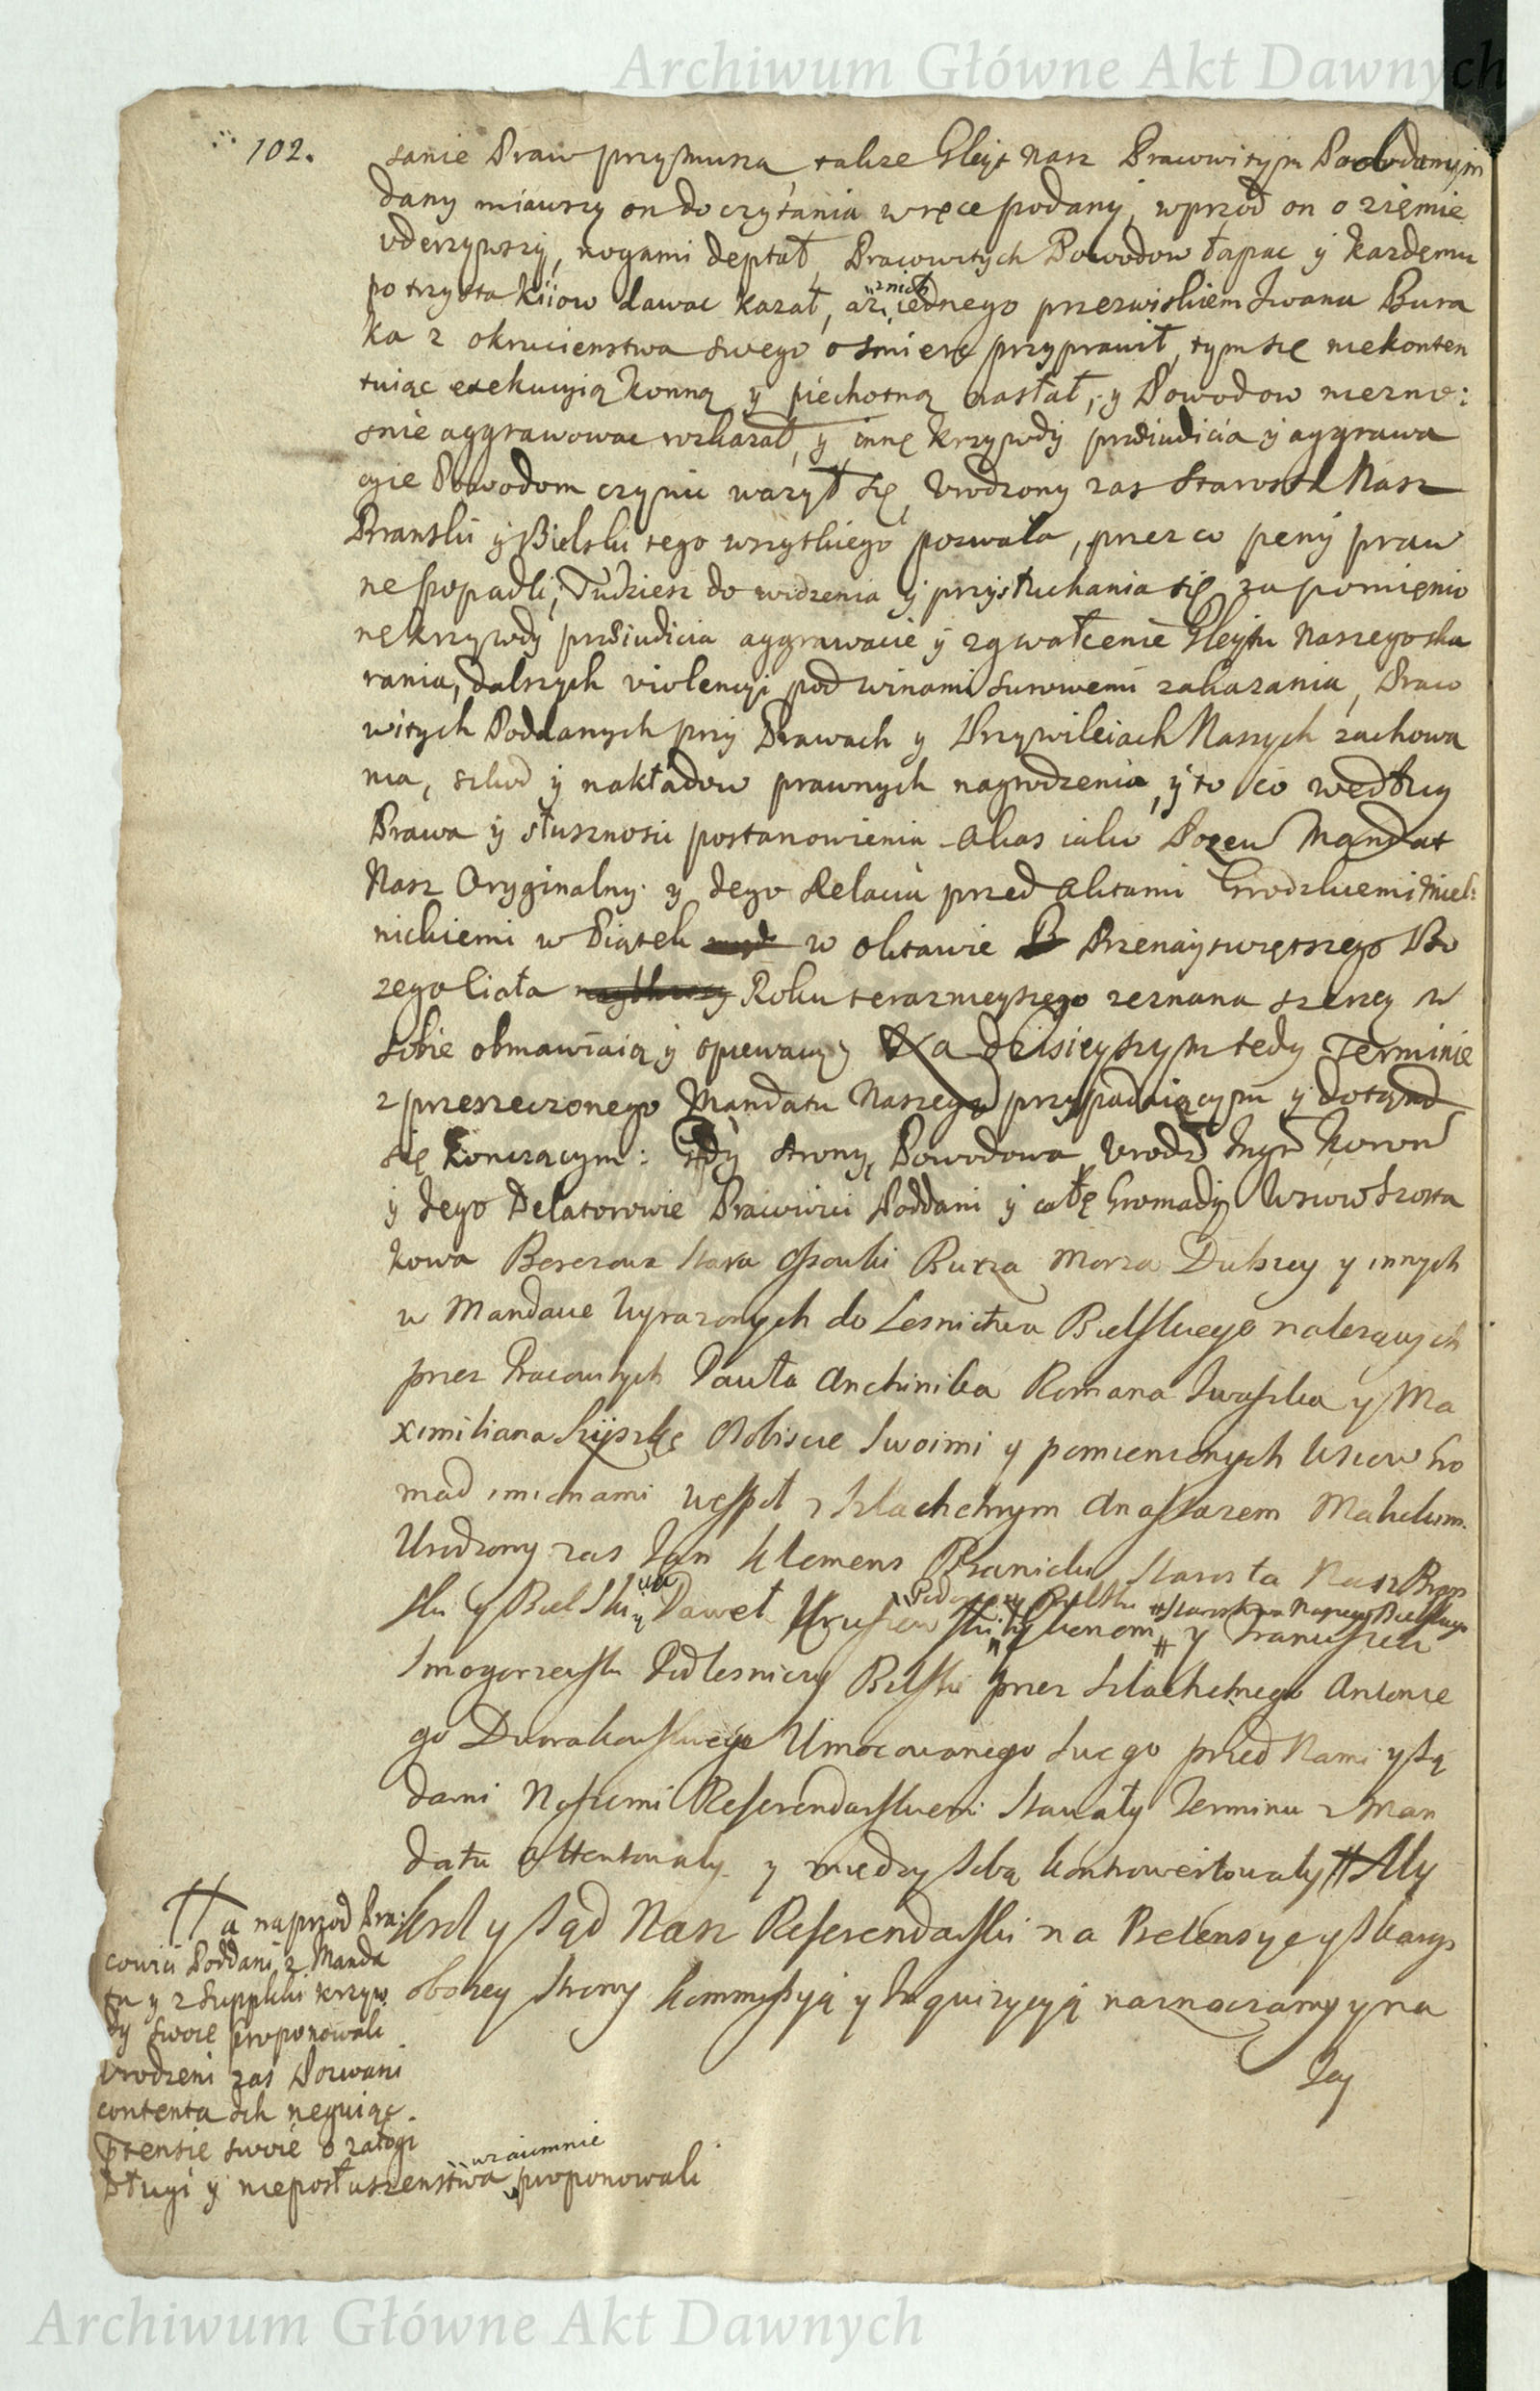 Archiwum Główne Akt Dawnych
102.
sanie Praw przymusza, także Gleyt Nasz Pracowitym Poddanym
dany miawszy on do czytania w ręce podany, wprzod on o ziemię
uderzywszy, nogami deptał, Pracowitych Powodow łapac y każdemu
po trzysta kiiow dawac kazał, aż z nich iednego przezwiskiem Iwana Bura
ka z okrucienstwa swego o smierc przyprawił, tym się niekonten
tuiąc exekucyią konną y piechotną nasłał, y Powodow niezno:
snie aggrawowac wskazał, y inne krzywdy præiudicia y aggrawa
cyie Powodom czynic ważył się, Urodzony zas Starosta Nasz
Branski y Bielski tego wszytkiego pozwala, przez co peny praw
ne popadli, Tudziesz do widzenia y przysłuchania się za pomienio
ne krzywdy præiudicia aggrawacie y zgwałcenie Gleytu Naszego ska
rania, dalszych violencyi pod winami surowemi zakazania, Praco
witych Poddanych przy Prawach y Przywileiach Naszych zachowa
nia, szkod y nakładow prawnych nagrodzenia, y to co według
Prawa y słusznosci postanowienia Akas iako Pozew Mandat
Nasz Oryginalny y Jego Relacia przed Aktami Grodzkiemi Miel:
nickiemi w Piątek w oktawie Przenayswiętszego Bo
żego Ciała Roku teraznieyszego zeznana szerzey w
sobie obmawiaią y opiewaią Na dzisieyszym tedy Terminie
z przerzeczonego Mandatu Naszego przypadaiącym y dotąd
się konczącym: Gdy strony, Powodowa Urodz Insty Koron
y Jego Delatorowie Pracowici Poddani y całe Gromady Wsiow Szosta
kowa Berezowa Stara Osowki Rutka Morza Dubicy y innych
w Mandacie wyrazonych do Lesnictwa Bielskiego nalezących
przez Pracowitych Pawła Anchimika Romana Iwaszka y Ma
ximiliana Szyszkę Osobiscie Swoimi y pomienionych Wsiow Gro
mad imionami wespoł z Szlachetnym Anastazem Makulum.
Urodzony zas Jan Klemens Branicki Starosta Nasz Brans
ski y Bielski, y Paweł Kruszewski Podstarosci Bielski # Starostwa Naszego Bielskiego # y Franciszek
Smogorzewski Podlesniczy Bielski przez Szlachetnego Antonie
go Dworakowskiego Umocowanego swego przed Nami y Są
dami Naszemi Referendarskiemi Stawały Terminu z Man
datu attentowały y między sobą kontrowertowały # My
Krol y Sąd Nasz Referendarski na Pretensye y Skargi
obozey Strony kommissyją y Inquizycyją naznaczamy y na
Tey
# a naprzod Pra:
cowici Poddani z Manda
tu y z Suppliki krzyw
dy swoie proponowali
Urodzeni zas Pozwani
contenta Ich neguiąc
Pretensie swoie o załogi
Długi y nieposłuszenstwa wzaiemnie proponowali
Archiwum Główne Akt Dawnych